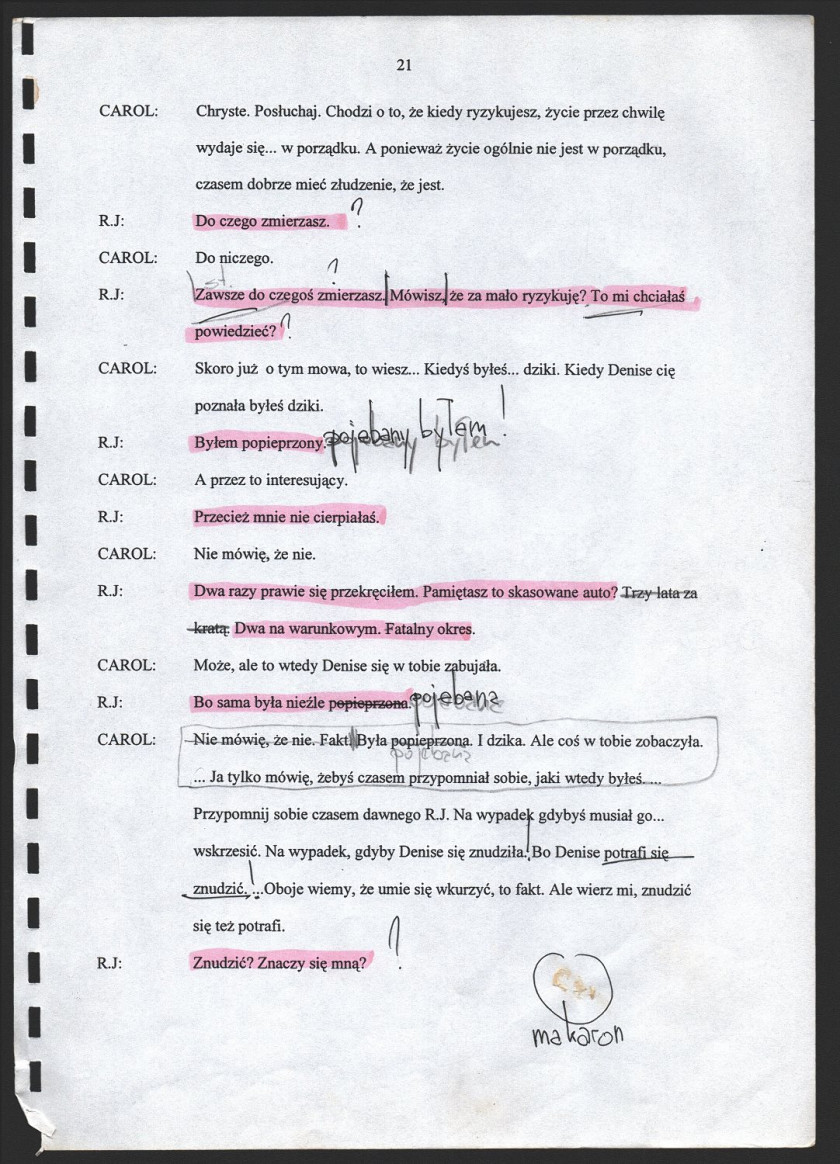 21
CAROL: Chryste. Posłuchaj. Chodzi o to, że kiedy ryzykujesz, życie przez chwilę
wydaje się... w porządku. A ponieważ życie ogólnie nie jest w porządku,
czasem dobrze mieć złudzenie, że jest.
R.J: Do czego zmierzasz. ?
CAROL: Do niczego.
st. ?
R.J: Zawsze do czegoś zmierzasz. Mówisz, że za mało ryzykuję? To mi chciałaś
powiedzieć? ?
CAROL: Skoro już o tym mowa, to wiesz... Kiedyś byłeś... dziki. Kiedy Denise cię
poznała byłeś dziki.
R.J: Byłem popieprzony. pojebany byłem!
CAROL: A przez to interesujący.
R.J: Przecież mnie nie cierpiałaś.
CAROL: Nie mówię, że nie.
R.J: Dwa razy prawie się przekręciłem. Pamiętasz to skasowane auto? Trzy lata za
kratą. Dwa na warunkowym. Fatalny okres.
CAROL: Może, ale to wtedy Denise się w tobie zabujała.
R.J: Bo sama była nieźle popieprzona. pojebana
CAROL: Nie mówię, że nie. Fakt. Była popieprzona. I dzika. Ale coś w tobie zobaczyła.
pojebana
... Ja tylko mówię, żebyś czasem przypomniał sobie, jaki wtedy byłeś. ...
Przypomnij sobie czasem dawnego R.J. Na wypadek gdybyś musiał go...
wskrzesić. Na wypadek, gdyby Denise się znudziła. Bo Denise potrafi się
znudzić. ...Oboje wiemy, że umie się wkurzyć, to fakt. Ale wierz mi, znudzić
się też potrafi.
R.J: Znudzić? Znaczy się mną? ?
makaron